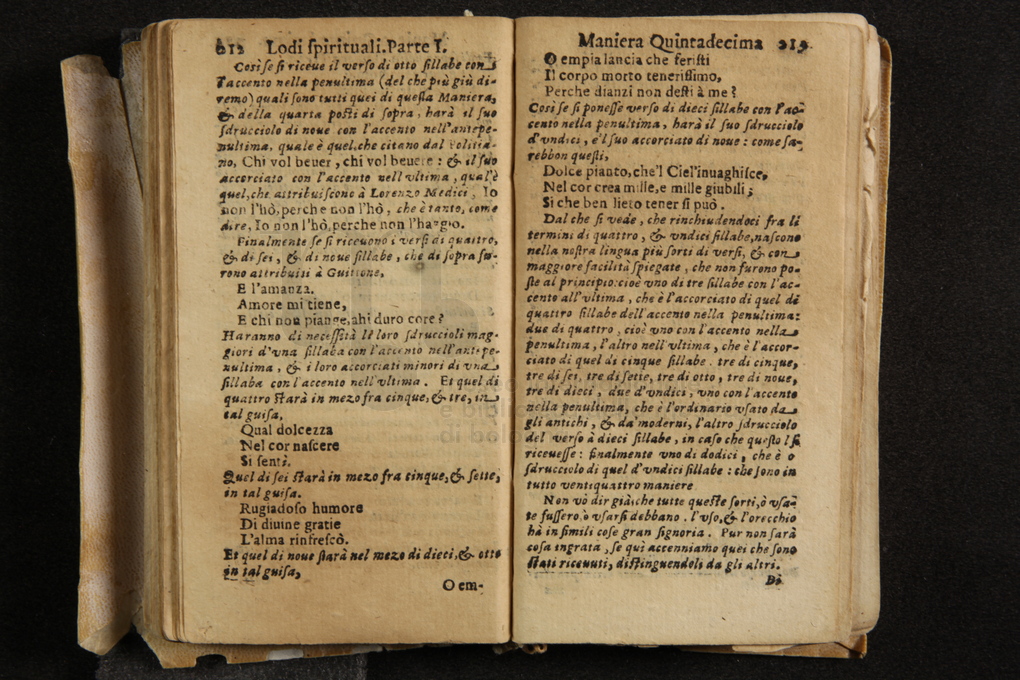 212 Lodi ſpirituali.Parte I.
Coſi ſe ſi riceue il verſo di otto ſillabe con
l'accento nella penultima (del che più giù di-
remo) quali ſono tutti quei di queſta Maniera,
& della quarta poſti di ſopra, harà il ſuo
ſdrucciolo di noue con l'accento nell'antepe-
nultima, quale è quel, che citano dal Politia-
no, Chi vol beuer, chi vol beuere: & il ſuo
accorciato con l'accento nell'vltima, qual'è
quel, che attribuiſcono à Lorenzo Medici, Io
non l'hò, perche non l'hò, che è tanto, come
dire, Io non l'hò, perche non l'haggio.
Finalmente ſe ſi riceuono i verſi di quattro,
& di ſei, & di noue ſillabe, che di ſopra fu-
rono attribuiti à Guittone,
E l'amanza.
Amore mi tiene,
E chi non piange, ahi duro core?
Haranno di neceſſità li loro ſdruccioli mag-
giori d'vna ſillaba con l'accento nell'antepe-
nultima, & i loro accorciati minori di vna
ſillaba con l'accento nell'vltima. Et quel di
quattro ſtarà in mezo fra cinque, & tre, in
tal guiſa,
Qual dolcezza
Nel cor naſcere
Si ſenti.
Quel di ſei ſtarà in mezo fra cinque, & ſette,
in tal guiſa.
Rugiadoſo humore
Di diuine gratie
L'alma rinfreſcò.
Et quel di noue ſtarà nel mezo di dieci, & otto
in tal guiſa,
O em-
Maniera Quintadecima 213
O empia lancia che feriſti
Il corpo morto teneriſſimo,
Perche dianzi non deſti à me?
Coſi ſe ſi poneſſe verſo di dieci ſillabe con l'ac-
cento nella penultima, harà il ſuo ſdrucciolo
d'vndici, e'l ſuo accorciato di noue: come ſa-
rebbon queſti,
Dolce pianto, che'l Ciel'inuaghiſce,
Nel cor crea mille, e mille giubili;
Si che ben lieto tener ſi può.
Dal che ſi vede, che rinchiudendoci fra li
termini di quattro, & vndici ſillabe, naſcono
nella noſtra lingua più ſorti di verſi, & con
maggiore facilità ſpiegate, che non furono po-
ſte al principio: cioè vno di tre ſillabe con l'ac-
cento all'vltima, che è l'accorciato di quel di
quattro ſillabe dell'accento nella penultima:
due di quattro, cioè vno con l'accento nella
penultima, l'altro nell'vltima, che è l'accor-
ciato di quel di cinque ſillabe. tre di cinque,
tre di ſei, tre di ſette, tre di otto, tre di noue,
tre di dieci, due d'vndici, vno con l'accento
nella penultima, che è l'ordinario vſato da
gli antichi, & da' moderni, l'altro ſdrucciolo
del verſo à dieci ſillabe, in caſo che queſto ſi
riceueſſe: finalmente vno di dodici, che è o
ſdrucciolo di quel d'vndici ſillabe: che ſono in
tutto ventiquattro maniere
Non vò dir già, che tutte queſte ſorti, ò vſa-
te fuſſero, ò vſarſi debbano. l'vſo, & l'orecchio
hà in ſimili coſe gran ſignoria. Pur non ſarà
coſa ingrata, ſe quì accenniamo quei che ſono
ſtati riceuuti, diſtinguendoli da gli altri.
Di